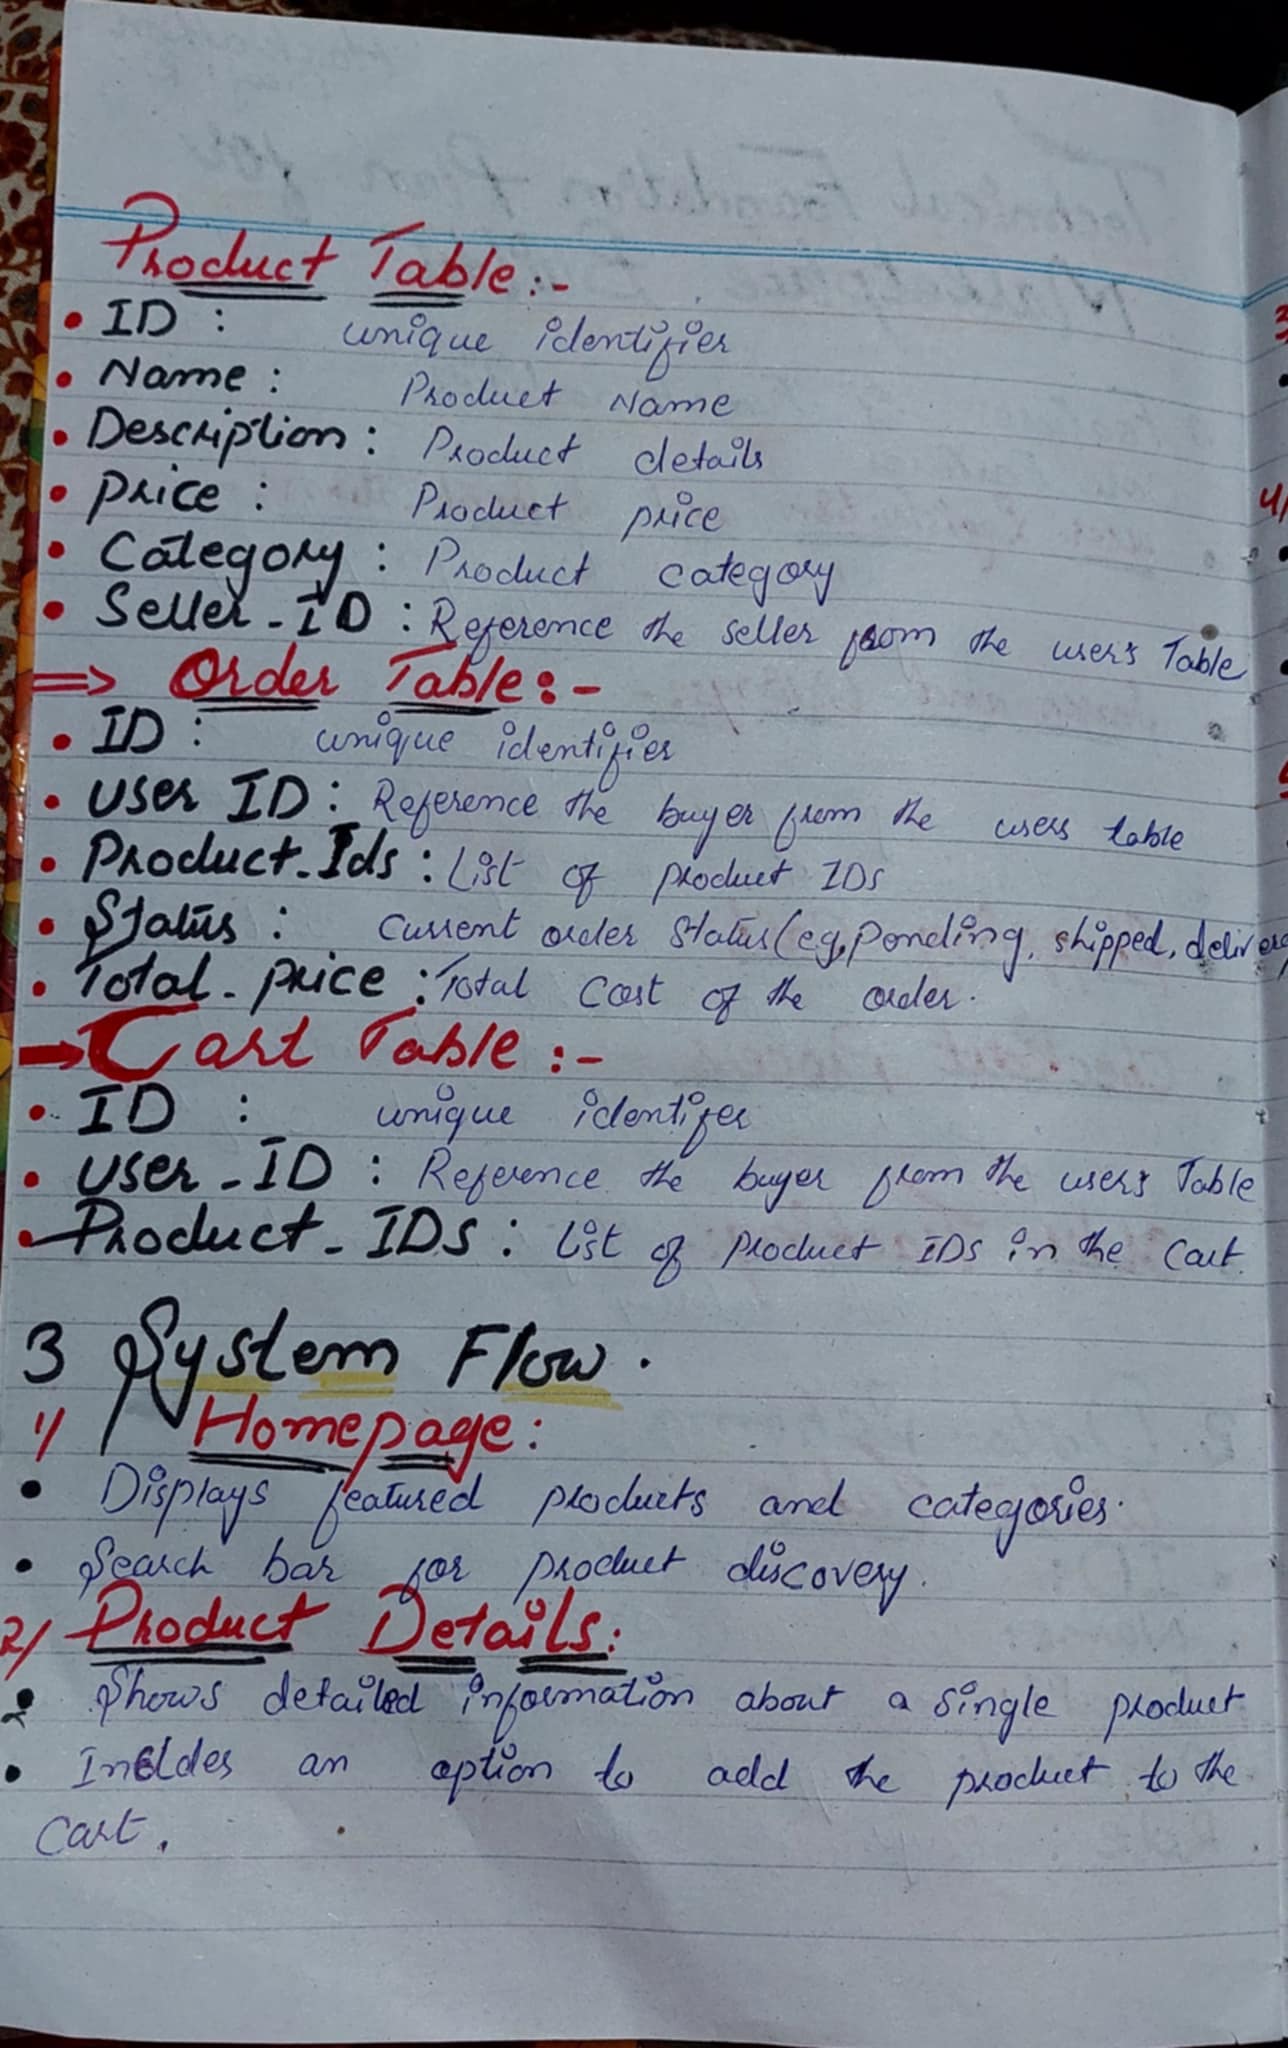 Product Table:-
• ID : unique identifier
• Name : Product Name
• Description : Product details
• Price : Product price
• Category : Product category
• Seller-ID : Reference the seller from the users Table
⇒ Order Table:-
• ID : unique identifier
• User ID : Reference the buyer from the users table
• Product-Ids : List of product IDs
• Status : Current order Status (eg, ponding, shipped, delivere
• Total-price : Total Cost of the order.
→ Cart Table :-
• ID : unique identifer
• User-ID : Reference the buyer from the users Table
• Product-IDs : List of product IDs in the Cart.
3 System Flow.
1/ Homepage:
• Displays featured products and categories.
• Search bar for product discovery.
2/ Product Details:
• Shows detailed information about a single product
• Incldes an option to add the product to the
Cart.